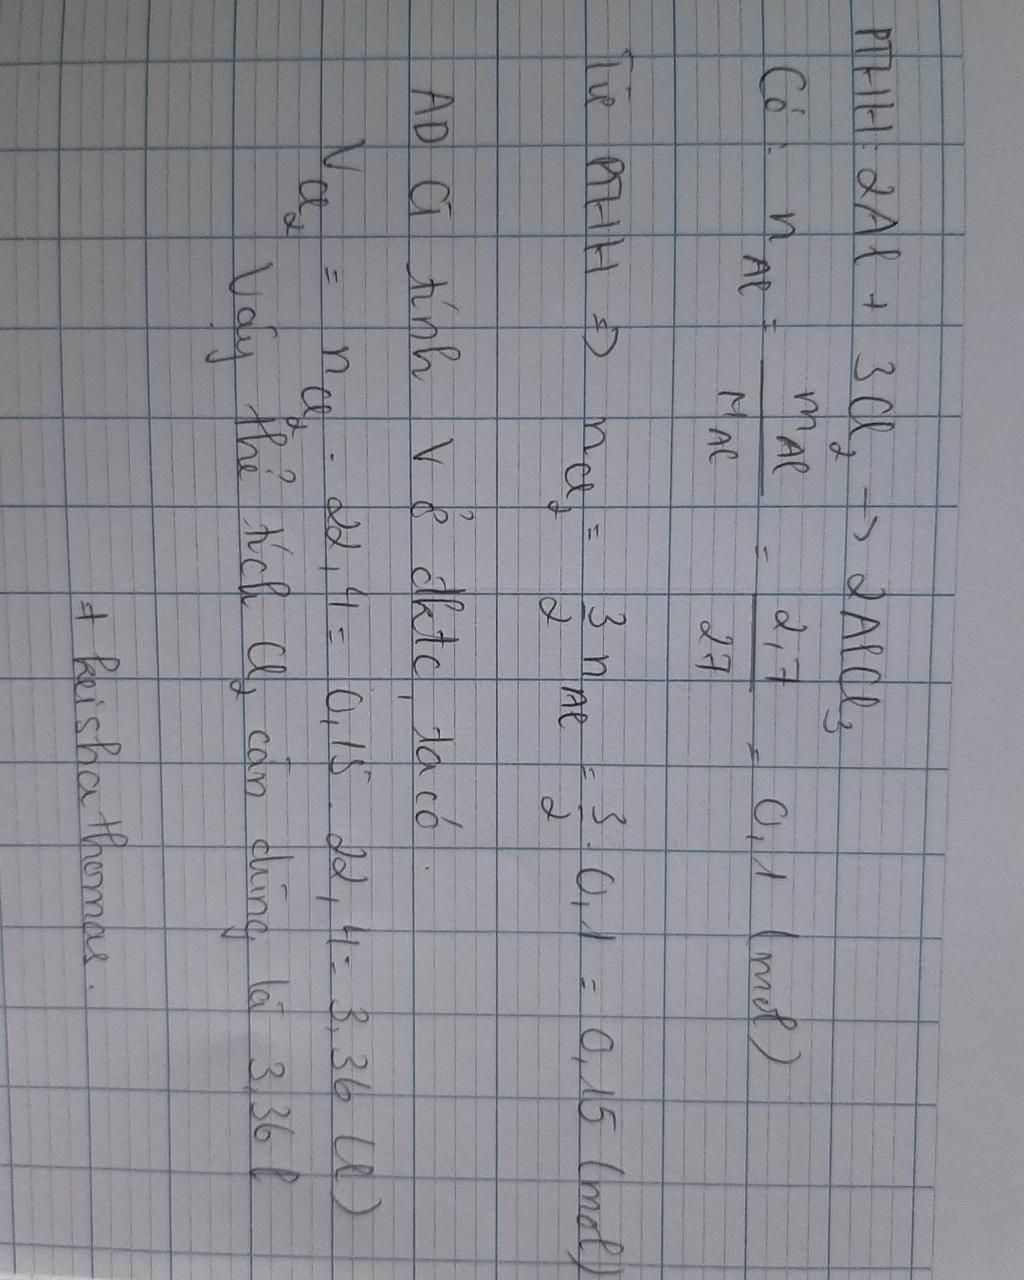 PTHH: 2Al + 3Cl2 → 2AlCl3
Có: nAl = mAl/MAl = 2,7/27 = 0,1 (mol)
Từ PTHH => nCl2 = 3/2 nAl = 3/2 . 0,1 = 0,15 (mol)
AD CT tính V ở đktc, ta có:
VCl2 = nCl2 . 22,4 = 0,15 . 22,4 = 3,36 (l)
Vậy thể tích Cl2 cần dùng là 3,36 l
# keishathomas.